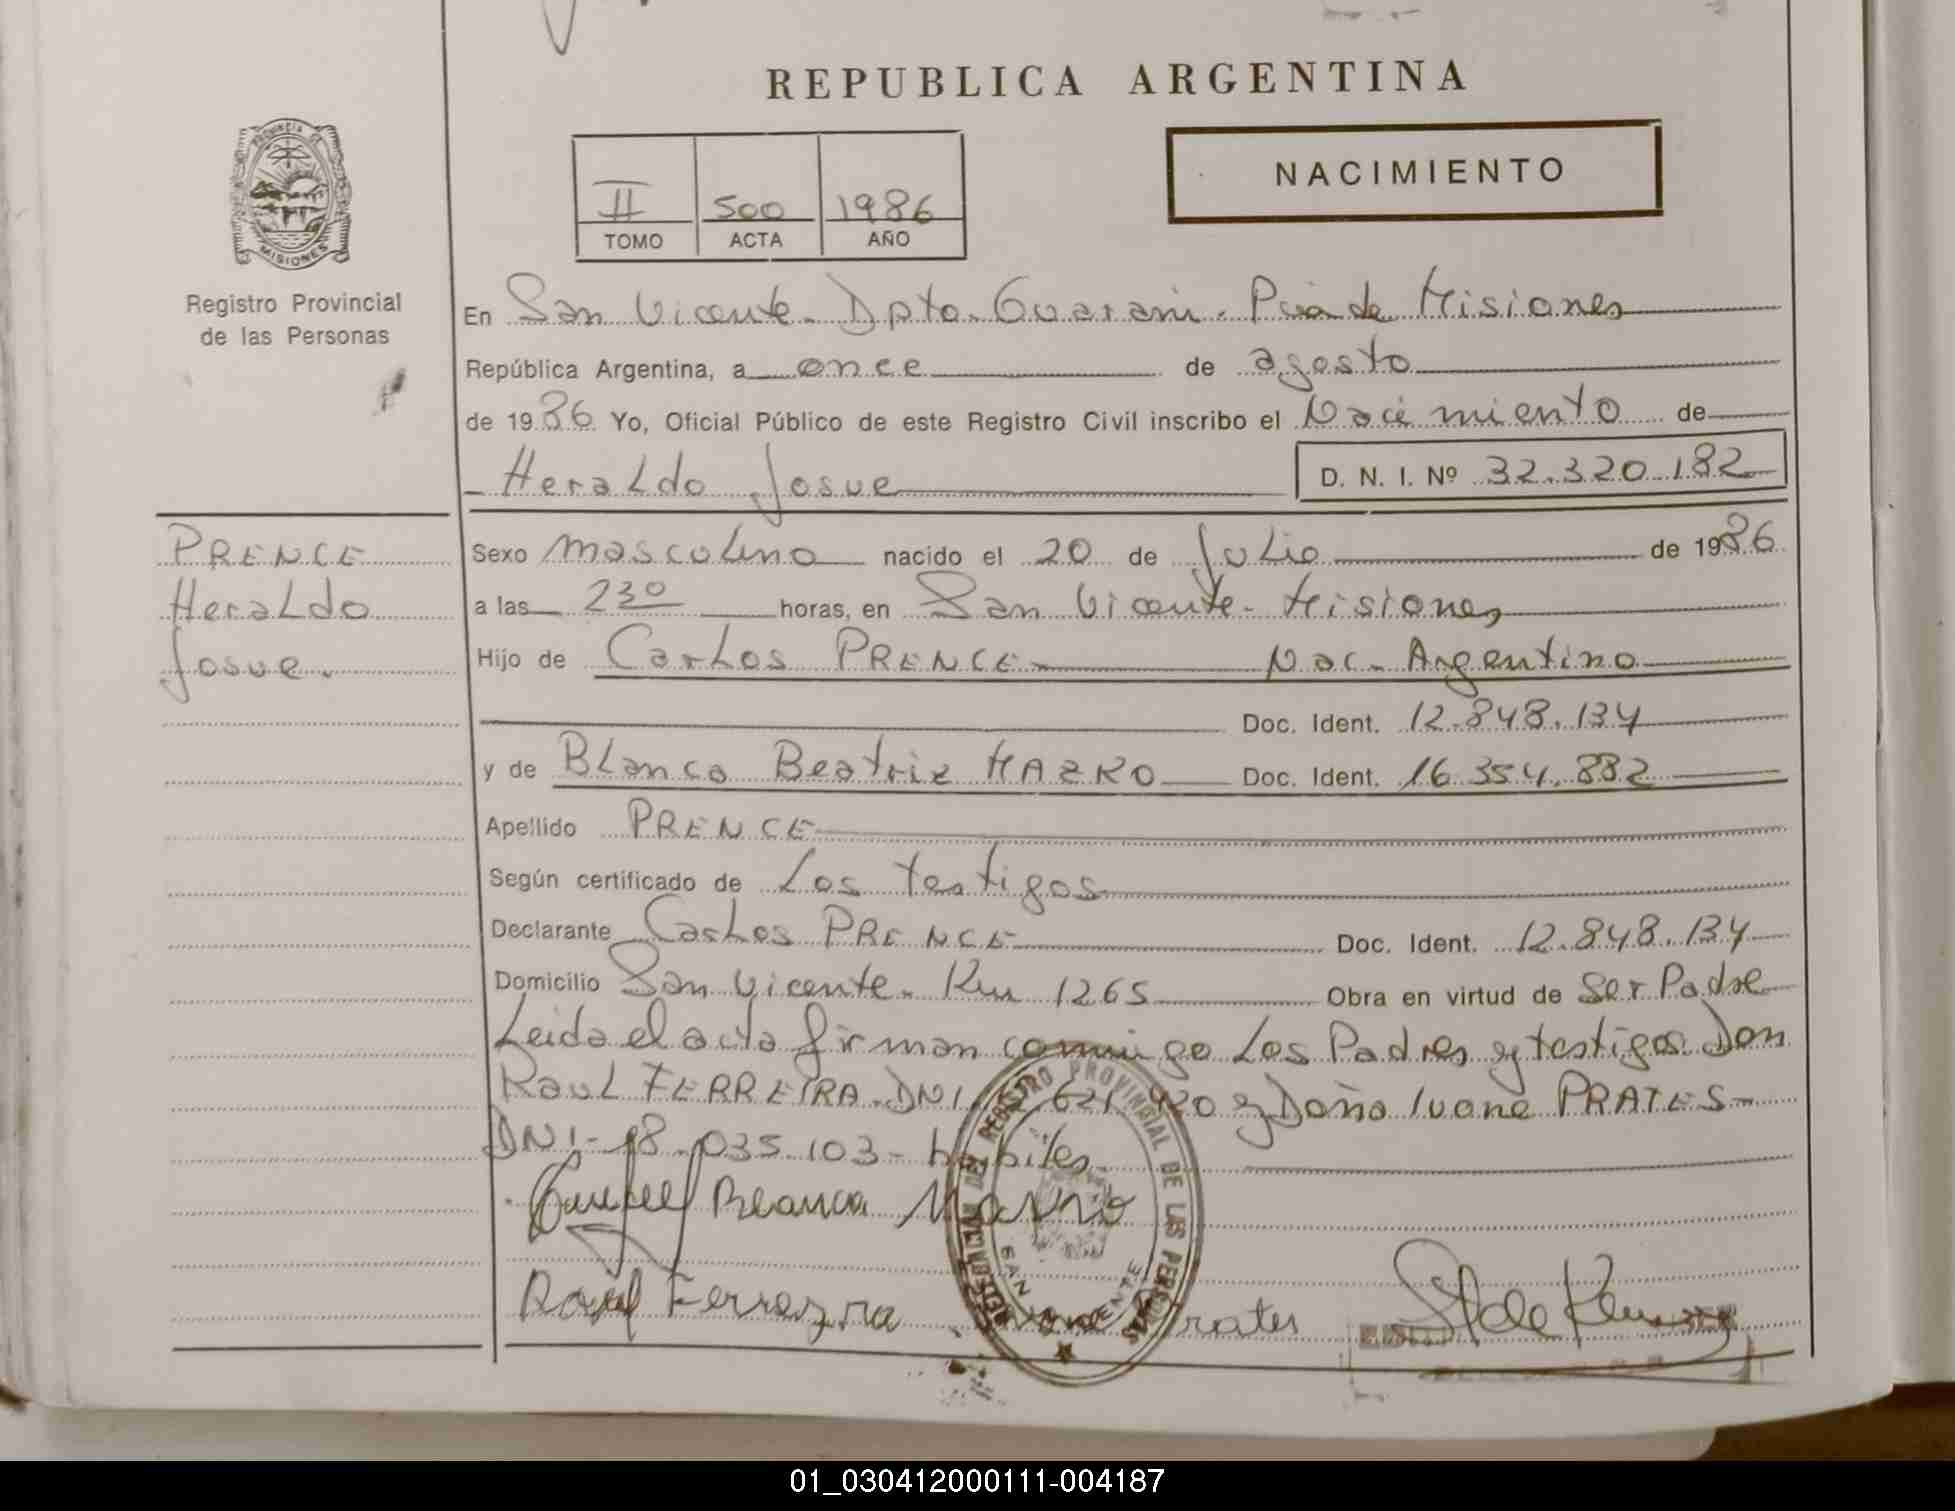 REPUBLICA ARGENTINA
PROVINCIA DE
MISIONES
Registro Provincial
de las Personas
II 500 1986
TOMO ACTA AÑO
NACIMIENTO
En San Vicente. Dpto. Guarani. Pcia de Misiones
República Argentina, a once de agosto
de 1986 Yo, Oficial Público de este Registro Civil inscribo el Nacimiento de
Heraldo Josue D. N. I. Nº 32.320.182
PRENCE
Heraldo
Josue.
Sexo masculino nacido el 20 de Julio de 1986
a las 23º horas, en San Vicente - Misiones
Hijo de Carlos PRENCE Nac. Argentino
Doc. Ident. 12.848.134
y de Blanca Beatriz Doc. Ident. 16.354.882
Apellido PRENCE
Según certificado de Los testigos
Declarante Carlos PRENCE Doc. Ident. 12.848.134
Domicilio San Vicente. Km 1265 Obra en virtud de Ser Padre
Leida el acta firman conmigo Los Padres y testigos Don
Raul FERREIRA. DNI y Doña Ivone PRATES -
DNI - 18.035.103 - habiles
Blanca
Raul Ferreyra Ivone Prates
DELEGACION DEL REGISTRO PROVINCIAL DE LAS PERSONAS
SAN VICENTE
01_030412000111-004187